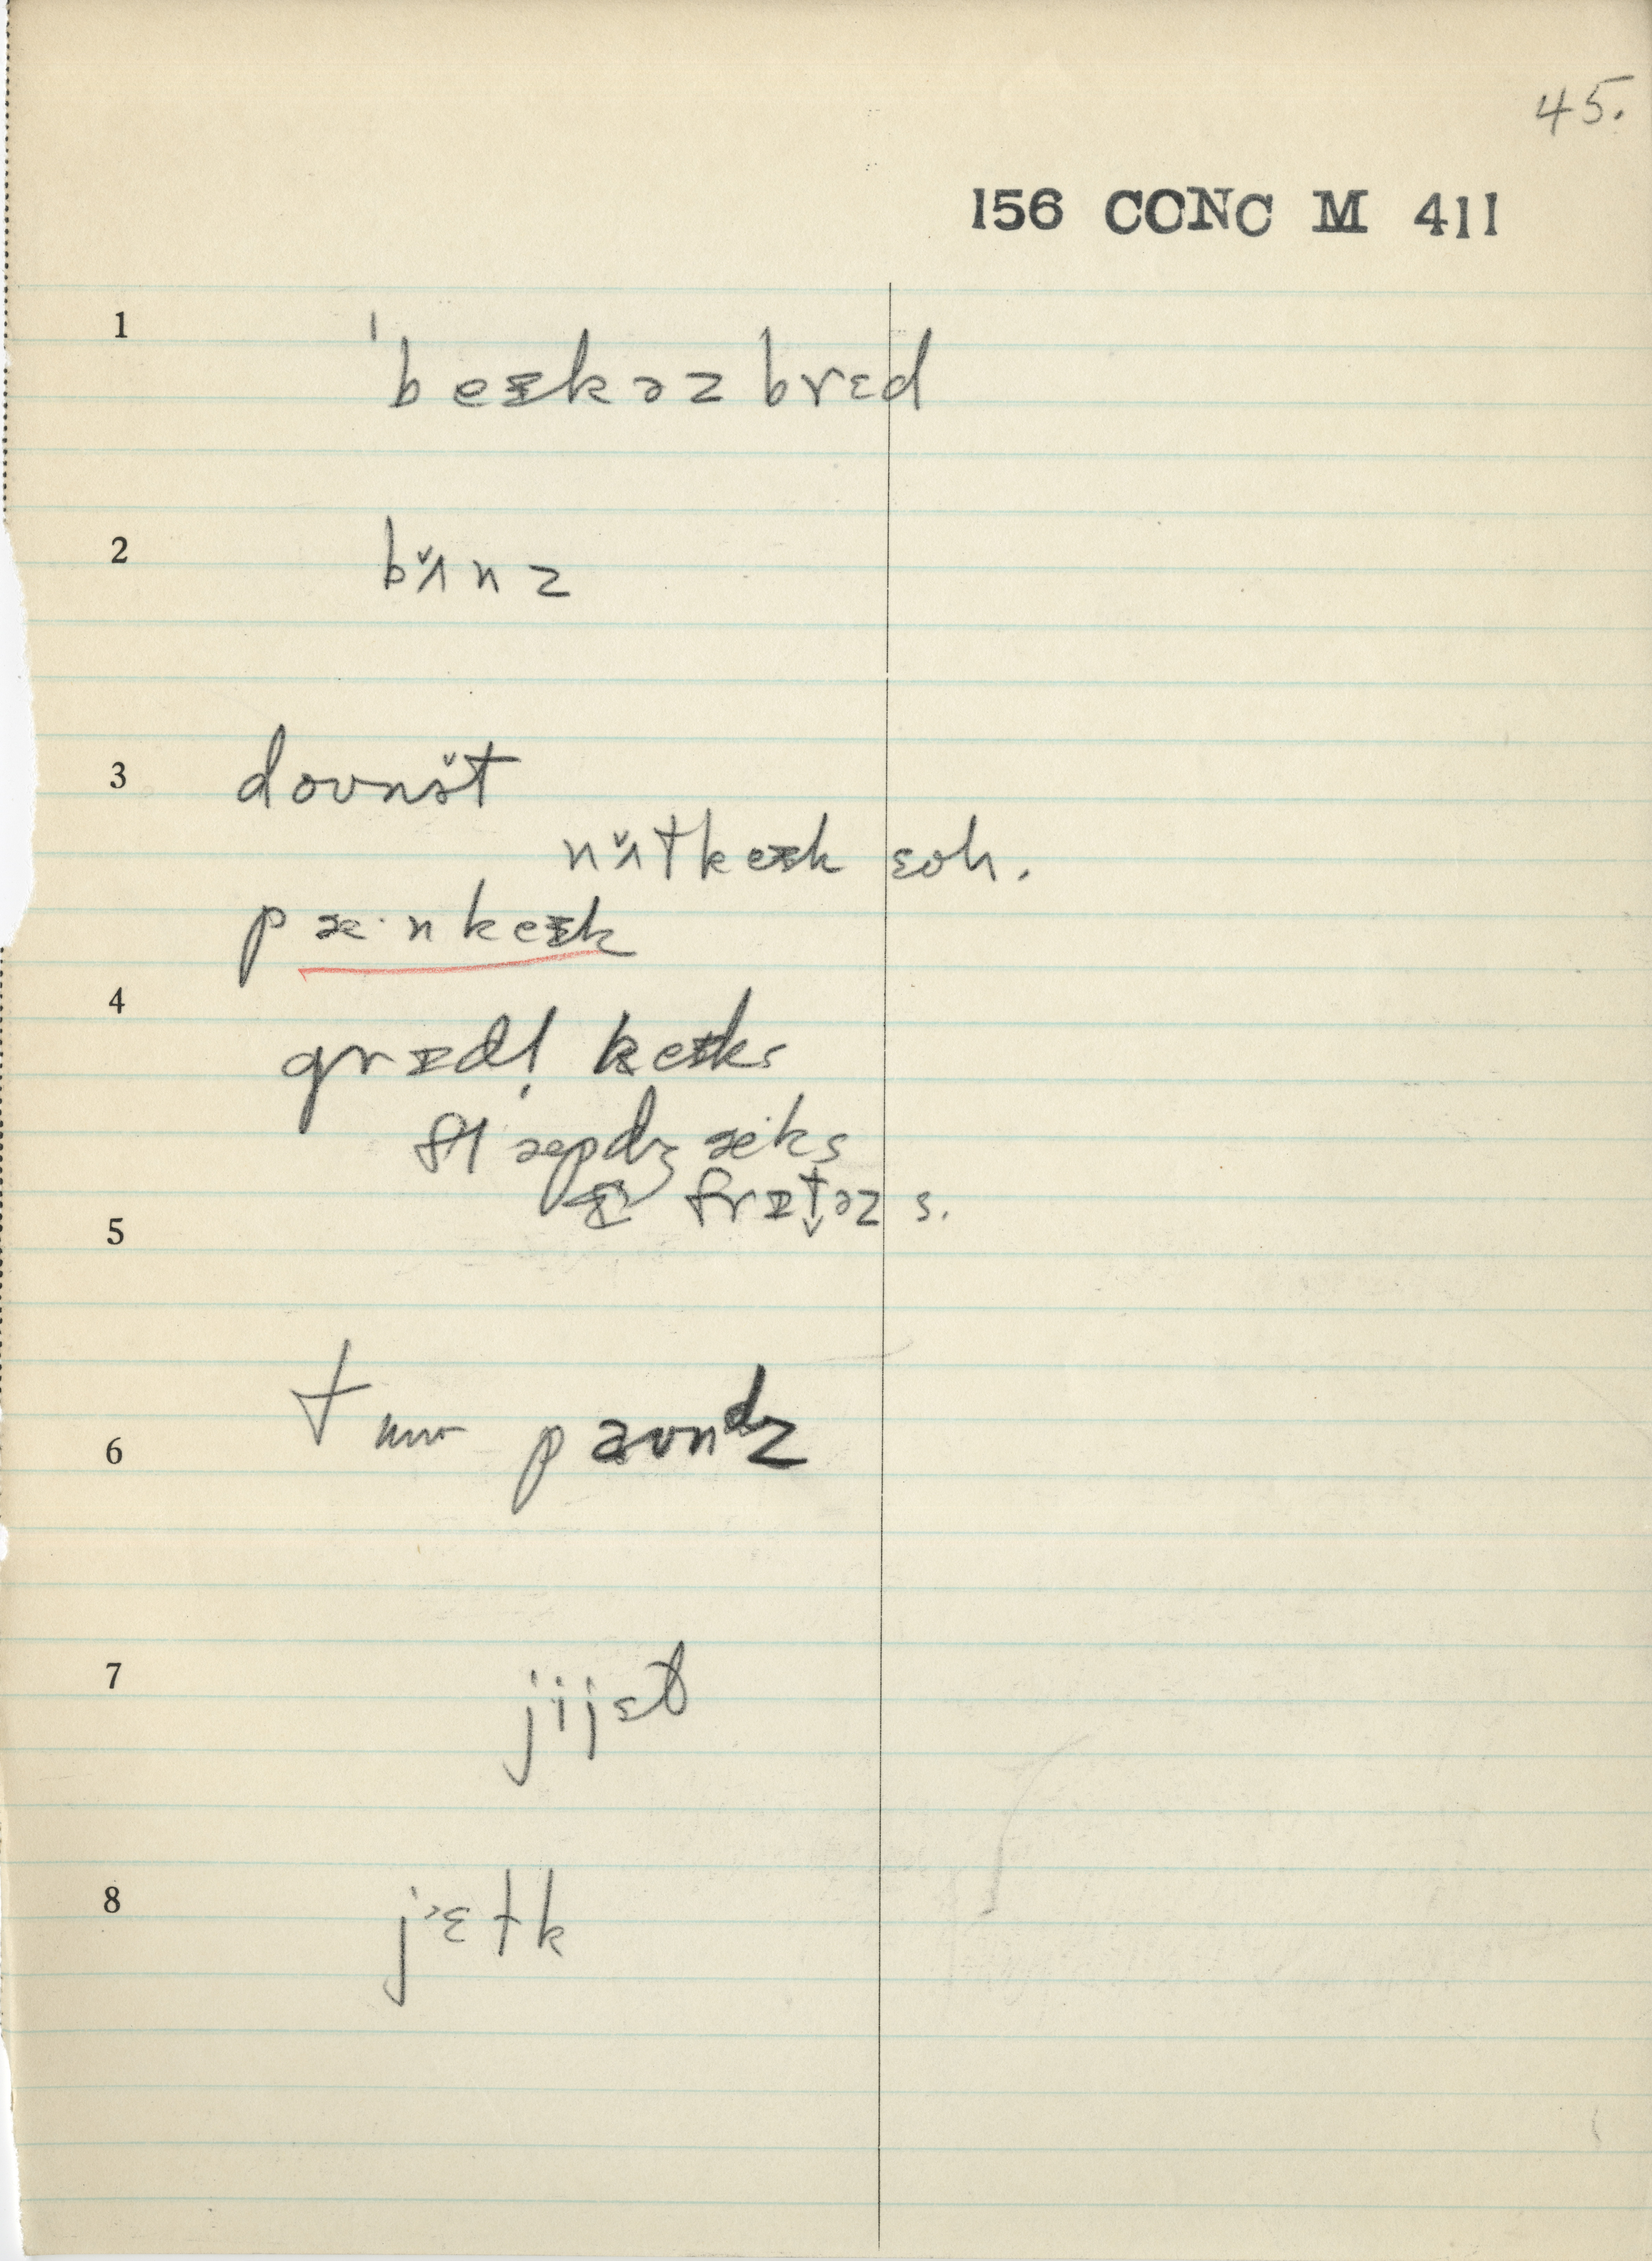 45.
156 CONC M 411
1 ˈbeᵻkəz brɛd
2 bɪ̌nz
3 doʊnə̌t
nʌ̌tkeᵻk soh.
pæ·nkeᵻk
4 grᵻdl̩ keᵻks
flæpdʒæks
frᵻt̬əz s.
5
6 tuw paʊndz
7 jijɛst
8 jɛ˂tk